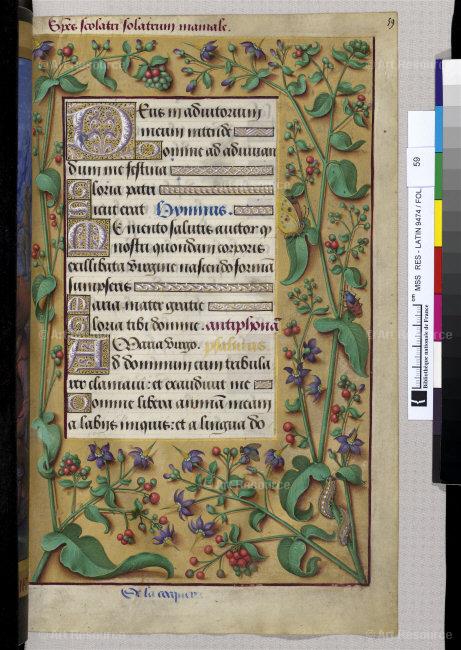 Spēs scolatri solatrum maniale.
59
Deus in adiutorium
meum intende
Domine ad adiuvan
dum me festina
Gloria patri
Sicut erat Hymnus.
Memento salutis auctor q
nostri quondam corporis
exillibata virgine nascendo formā
sumpseris
Maria mater gratie
Gloria tibi domine antiphonā
Maria virgo. psalmus
Ad dominum cum tribula
rer clamavi: et exaudivit me
Domine libera animam meam
a labijs iniquis: et a lingua do
De la
© Art Resource
59
MSS RES - LATIN 9474 / FOL.
cm
Bibliothèque nationale de France